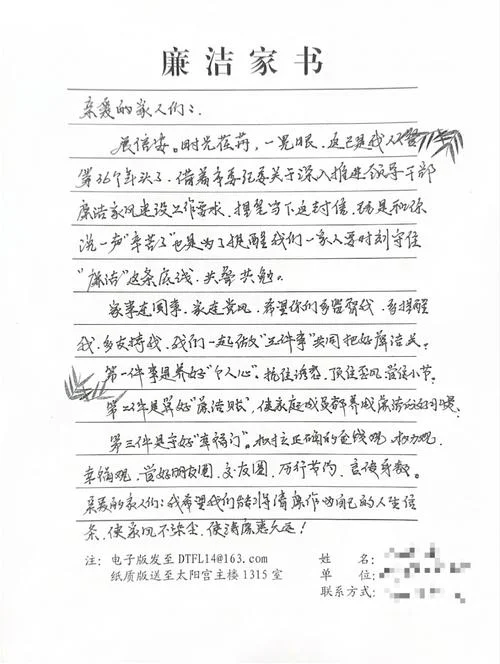 廉洁家书
亲爱的家人们：
展信安。时光荏苒，一晃眼，这已是我从警
第36个年头了，借着市委纪委关于深入推进领导干部
廉洁家风建设工作要求，提笔写下这封信，既是和你
说一声"辛苦了"也是为了提醒我们一家人要时刻守住
"廉洁"这条底线，共勉。
家事连国事，家连党风，希望你们多监督我，多提醒
我，多支持我，我们一起做"三件事"共同把好廉洁关。
第一件事是养好"个人心"。抗住诱惑，顶住歪风，管住小节。
第二件是算好"廉洁账"，使家庭成员都养成廉洁的好习惯。
第三件是守好"幸福门"。树立正确的金钱观，权力观，
幸福观，管好朋友圈，交友圈，厉行节约，言传身教。
亲爱的家人们：我希望我们能引导清廉作为自己的人生信
条，使家风不染尘，使清廉惠久远！
注：电子版发至 DTFL14@163.com
纸质版送至太阳宫主楼 1315 室
姓 名：
单 位：
联系方式：